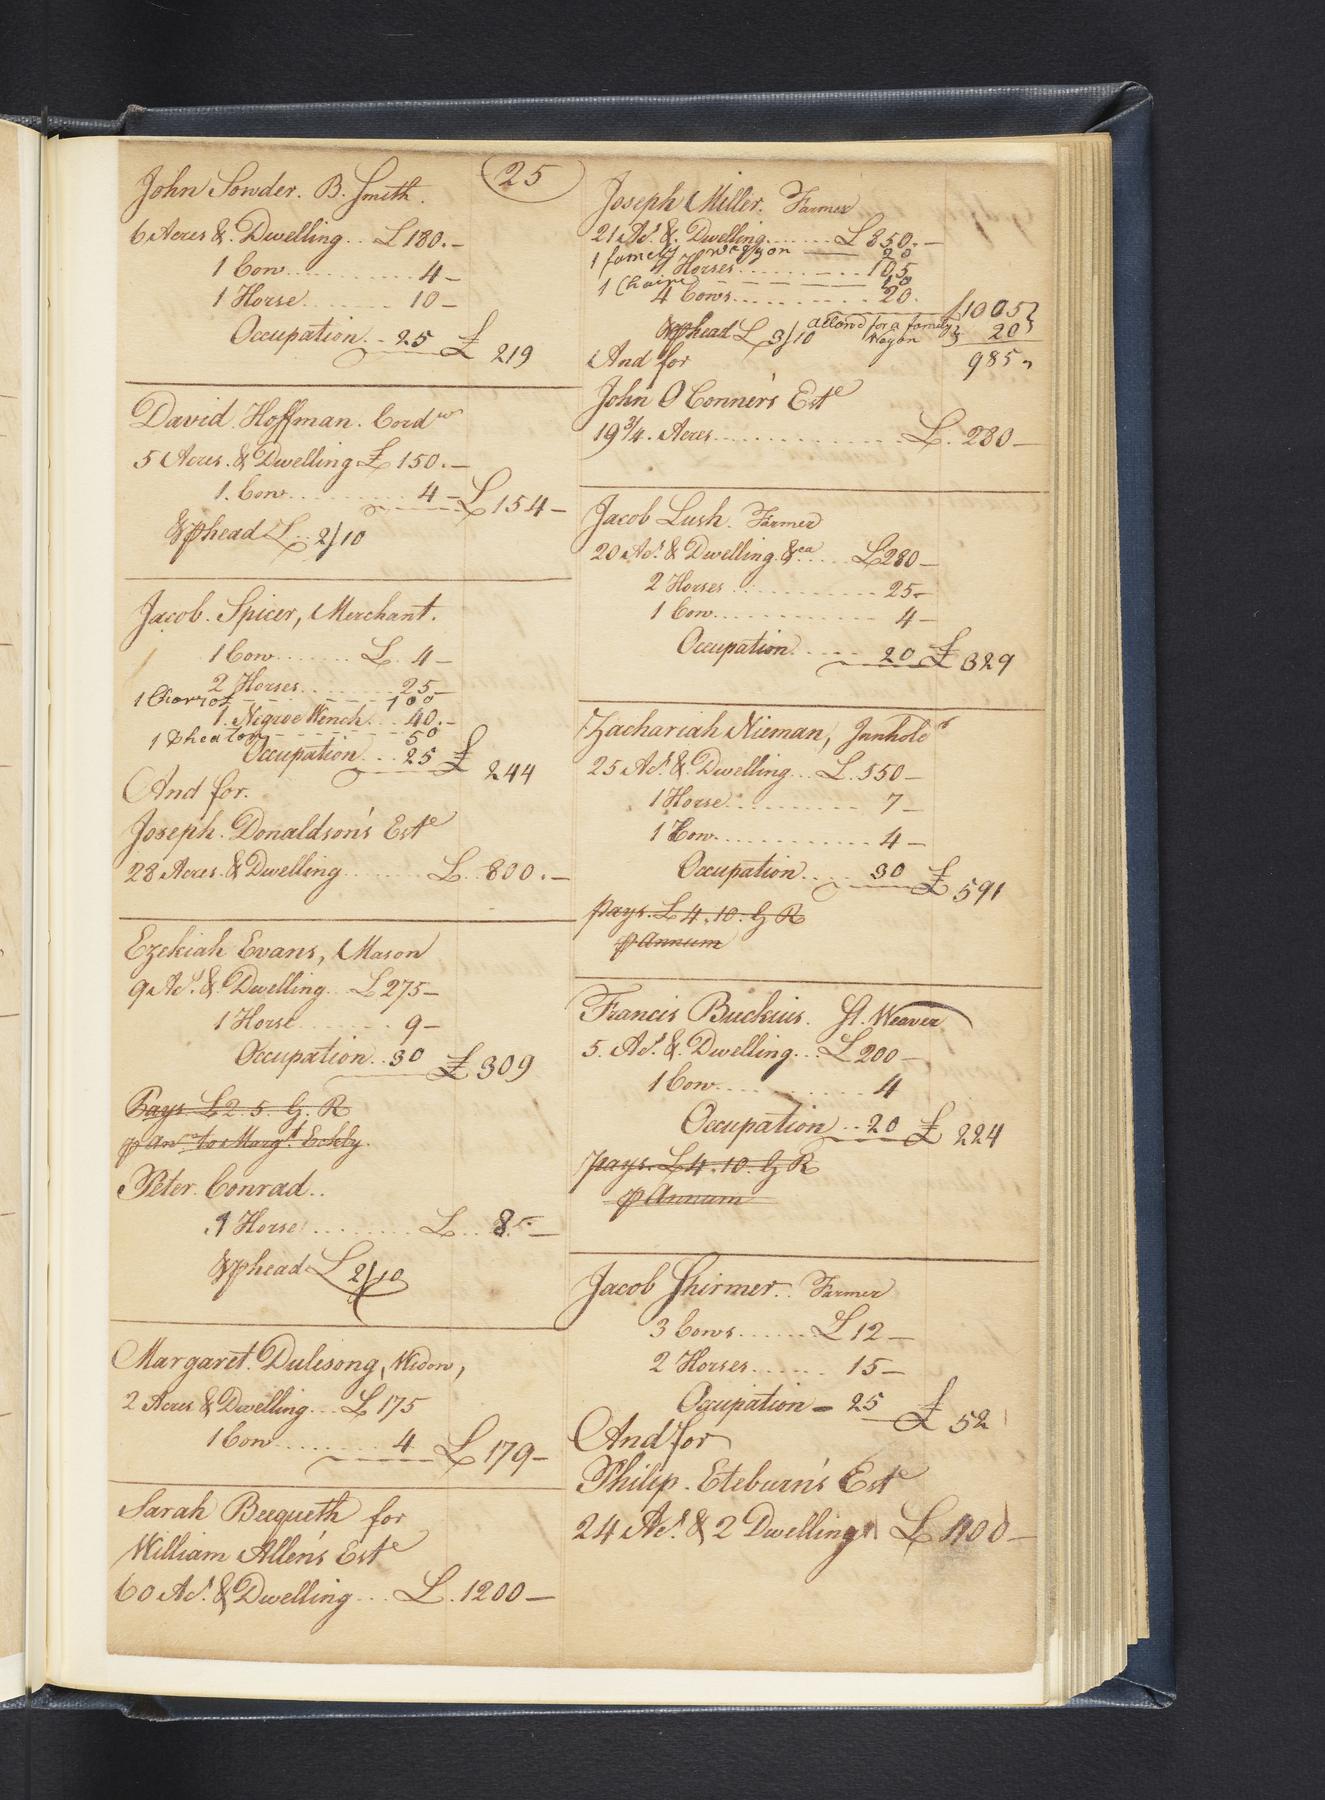 25
John Sowder. B. Smith.
6 Acres &. Dwelling... £180.-
1 Cow........... 4-
1 Horse......... 10-
Occupation.. 25 £ 219
David Hoffman. Cordw
5 Acres. & Dwelling £ 150.-
1. Cow........ 4- £154-
⅌ head £.. 2/10
Jacob. Spicer, Merchant.
1 Cow....... £. 4-
2 Horses......... 25-
1 Charriot 100
1. Negroe Wench... 40.-
1 Pheaton 50
Occupation... 25 £ 244
And for.
Joseph. Donaldson's Este
28 Acres. & Dwelling....... £. 800.-
Ezekiah Evans, Mason
9 Acs. & Dwelling.. £275-
1 Horse........ 9-
Occupation.. 30 £ 309
Pays. £2. 5. G. R
⅌ Anm to Margt Eckly.
Peter. Conrad..
1 Horse......... £... 8.-
⅌ head £2/10
Margaret. Dulesong, Widow,
2 Acres & Dwelling... £175
1 Cow........ 4 £179-
Sarah Becqueth for
William Allen's Este
60 Acs. & Dwelling.... £. 1200-
Joseph Miller. Farmer
21 Acs. &. Dwelling....... £850.-
1 famely waggon 20
Horses............ 105
1 Chaire 10
4 Cows............ 20. £1005
⅌ head £ 3/10 allow'd for a family Wagon 20
And for 985
John O Conner's Este
19 3/4. Acres............... £. 280-
Jacob Lush. Farmer
20 Acs. & Dwelling. &ca..... £280-
2 Horses............. 25-
1 Cow............... 4-
Occupation...... 20 £ 329
Zachariah Nieman, Innholdr
25 Acs. &. Dwelling... £. 550-
1 Horse........... 7-
1 Cow............. 4-
Occupation..... 30 £ 591
Pays. £ 4. 10. G R
⅌ Annum
Francis Buckius. St. Weaver
5. Acs. & Dwelling... £200-
1 Cow........... 4
Occupation... 20 £ 224
Pays. £4. 10. G R
⅌ Annum
Jacob Shirmer.. Farmer
3 Cows....... £12-
2 Horses...... 15-
Occupation - 25 £ 52
And for
Philip. Eteburn's Este
24 Acs. & 2 Dwellings £ 1100-